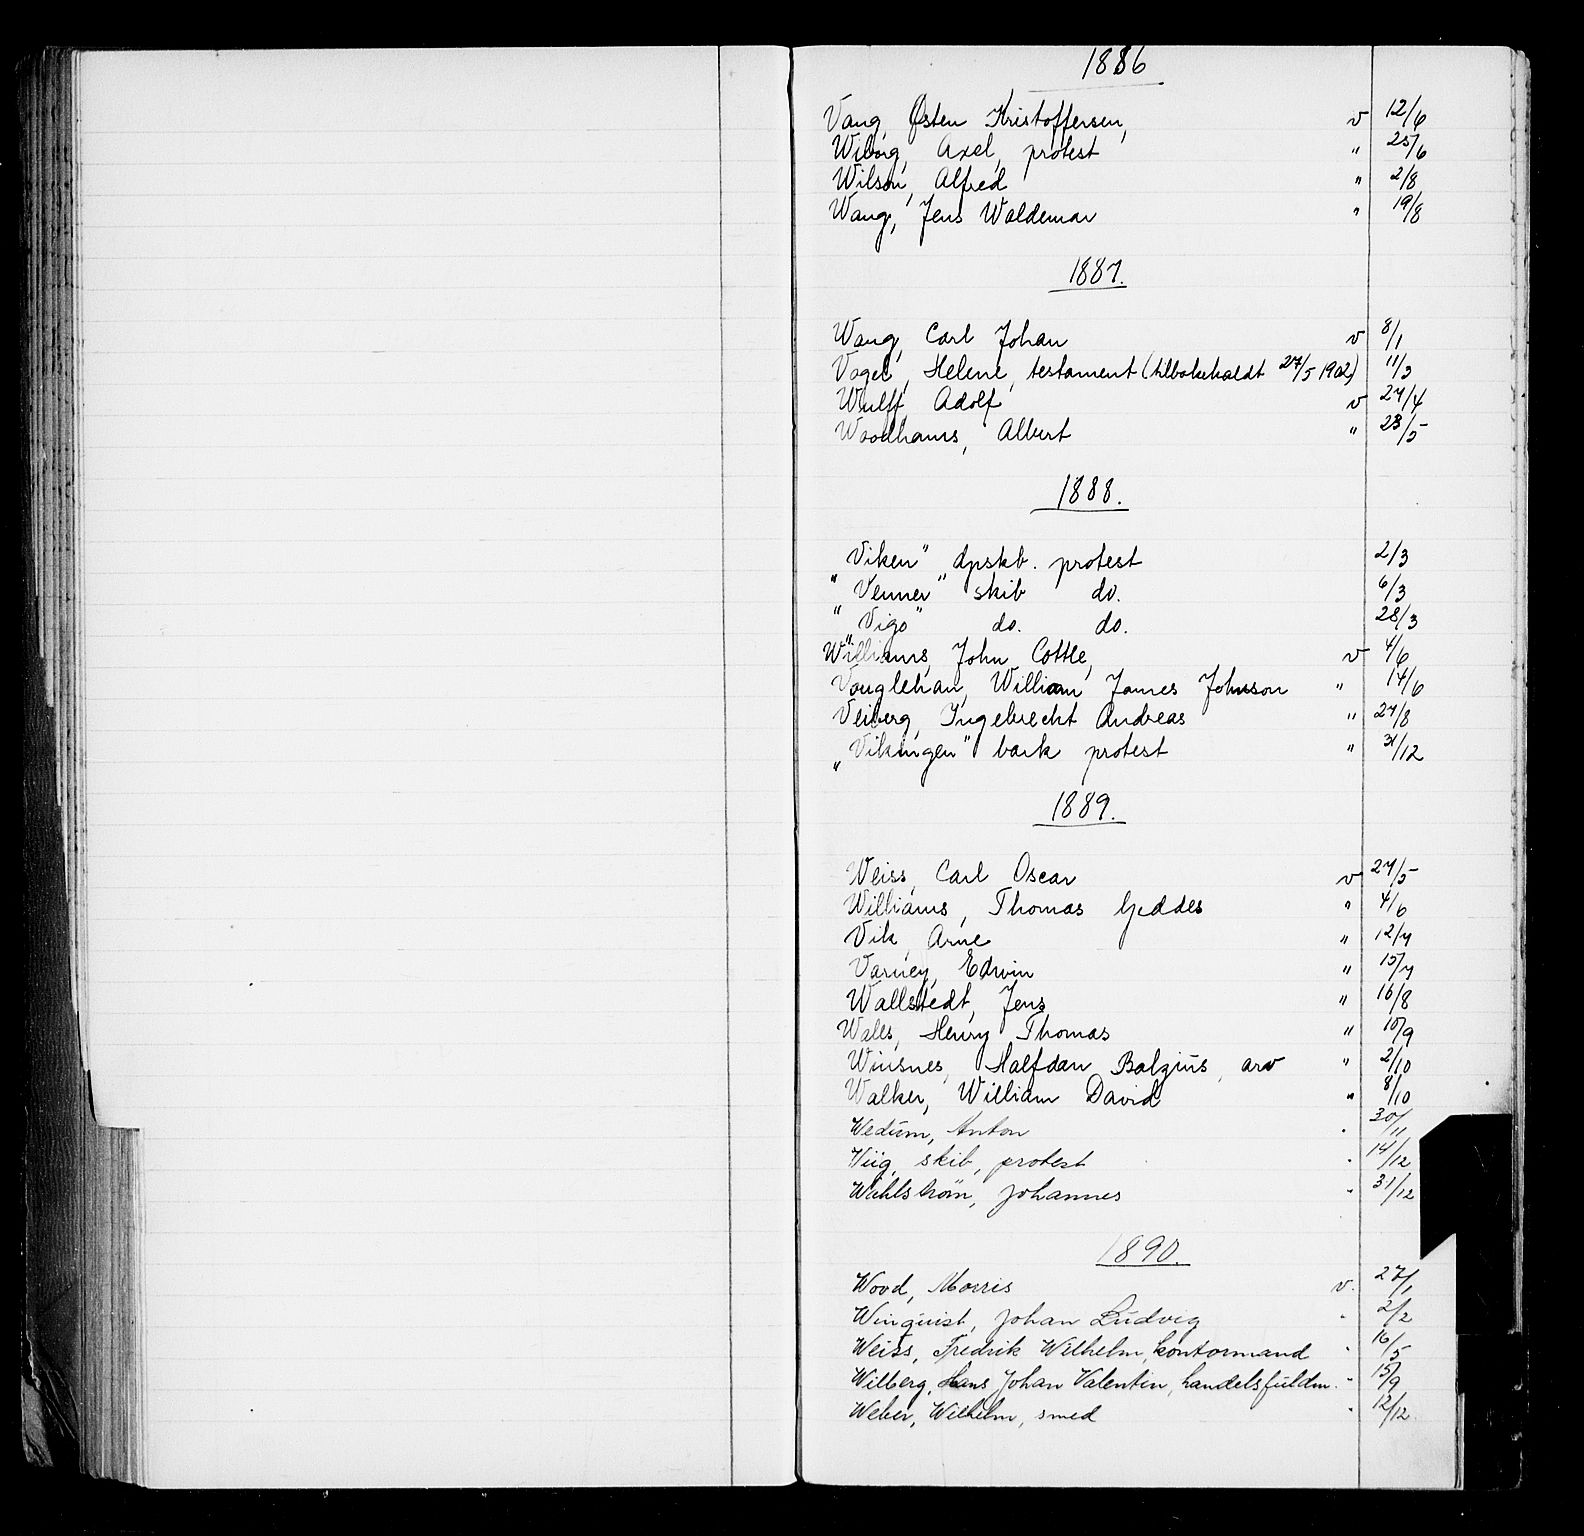 1886
Vang, Østen Kristoffersen, v 12/6
Wiborg, Axel, protest " 25/6
Wilson, Alfred " 2/8
Wang, Jens Waldemar " 19/8
1887.
Wang, Carl Johan v 8/1
Vogel, Helene, testament (tilbakekaldt 27/5 1902) 11/3
Wulff, Adolf v 27/4
Woodhams, Albert " 23/5
1888.
"Viken" dpskb. protest 2/3
"Venner" skib do. 6/3
"Vigo" do. do. 28/3
Williams, John Cottle, v 4/6
Vauglehan, William James Johnson " 14/6
Veiberg, Ingebrecht Andreas " 27/8
"Vikingen" bark protest " 31/12
1889.
Weiss, Carl Oscar v 27/5
Williams, Thomas Geddes " 4/6
Vik, Arne " 12/7
Varney, Edwin " 15/7
Wallstedt, Jens " 16/8
Wales, Henry Thomas " 10/9
Winsnes, Halfdan Balzius, arv " 2/10
Walker, William David " 8/10
Wedum, Anton " 30/11
Viig, skib, protest " 14/12
Wahlstrøm, Johannes " 31/12
1890.
Wood, Morris v. 27/1
Winquist, Johan Ludvig " 2/2
Weiss, Fredrik Wilhelm, kontormand " 16/5
Wilberg, Hans Johan Valentin, handelsfuldm. " 15/9
Weber, Wilhelm, smed " 12/12